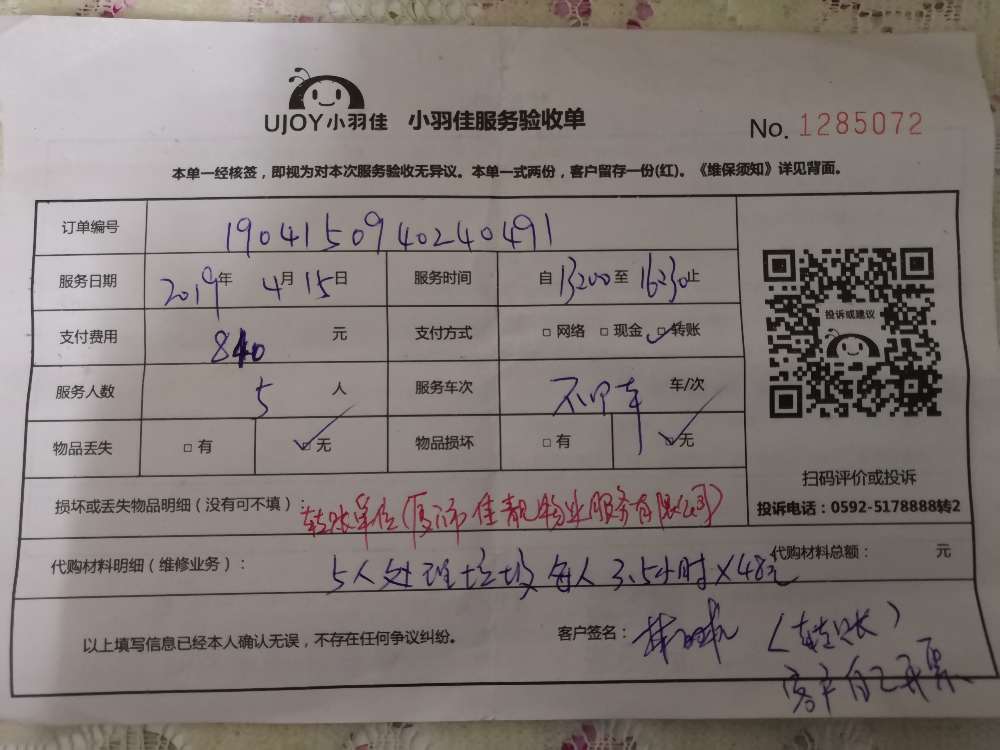 UJOY小羽佳 小羽佳服务验收单
No. 1285072
本单一经核签，即视为对本次服务验收无异议。本单一式两份，客户留存一份(红)。《维保须知》详见背面。
订单编号 1904150940240491
服务日期 2019年 4月15日 服务时间 自13:00至16:30止
支付费用 840 元 支付方式 □网络 □现金 □转账
投诉或建议
服务人数 5 人 服务车次 不用车 车/次
物品丢失 □有 □无 物品损坏 □有 □无
扫码评价或投诉
损坏或丢失物品明细（没有可不填）：转账单位(厦门市佳靓物业服务有限公司)
投诉电话：0592-5178888转2
代购材料明细（维修业务）：5人处理垃圾每人3.5小时×48元
代购材料总额： 元
以上填写信息已经本人确认无误，不存在任何争议纠纷。 客户签名： (转账)
客户自己开票